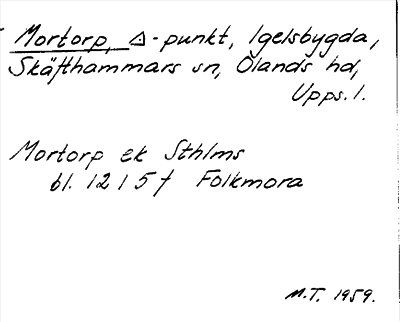 Mortorp, △-punkt, Igelsbygda,
Skäfthammars sn, Olands hd,
Upps. l.
Mortorp ek Sthlms
bl. 12 I 5 f Folkmora
M.T. 1959.